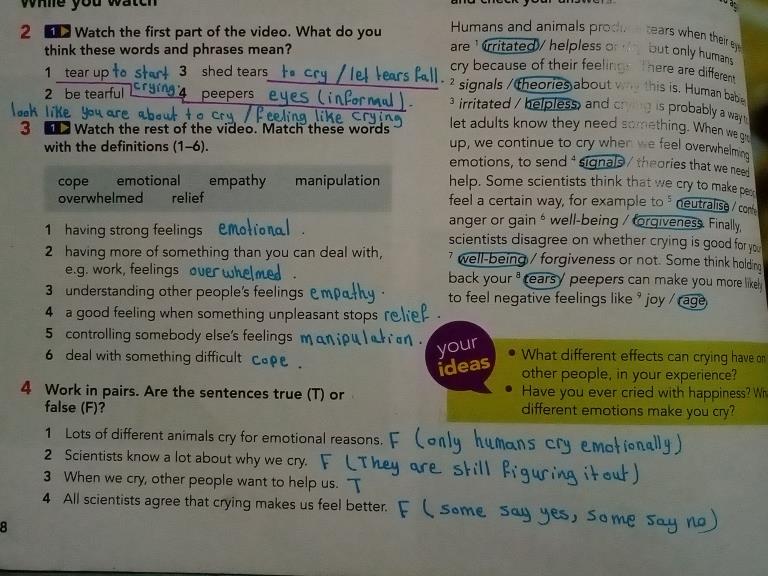 While you watch
2 1 Watch the first part of the video. What do you
think these words and phrases mean?
1 tear up to start crying. 3 shed tears to cry / let tears fall.
2 be tearful 4 peepers eyes (informal).
look like you are about to cry / feeling like crying
3 1 Watch the rest of the video. Match these words
with the definitions (1–6).
cope emotional empathy manipulation
overwhelmed relief
1 having strong feelings emotional.
2 having more of something than you can deal with,
e.g. work, feelings overwhelmed.
3 understanding other people's feelings empathy.
4 a good feeling when something unpleasant stops relief.
5 controlling somebody else's feelings manipulation.
6 deal with something difficult cope.
4 Work in pairs. Are the sentences true (T) or
false (F)?
1 Lots of different animals cry for emotional reasons. F (only humans cry emotionally)
2 Scientists know a lot about why we cry. F (They are still figuring it out)
3 When we cry, other people want to help us. T
4 All scientists agree that crying makes us feel better. F (some say yes, some say no)
8
and check your answers.
Humans and animals tears when their
are 1 irritated / helpless or but only humans
cry because of their feelings. There are different
2 signals / theories about why this is. Human babies
3 irritated / helpless, and crying is probably a way
let adults know they need something. When we
up, we continue to cry when we feel overwhelming
emotions, to send 4 signals / theories that we need
help. Some scientists think that we cry to make
feel a certain way, for example to 5 neutralise /
anger or gain 6 well-being / forgiveness. Finally,
scientists disagree on whether crying is good for
7 well-being / forgiveness or not. Some think holding
back your 8 tears / peepers can make you more likely
to feel negative feelings like 9 joy / rage.
your
ideas
• What different effects can crying have on
other people, in your experience?
• Have you ever cried with happiness?
different emotions make you cry?